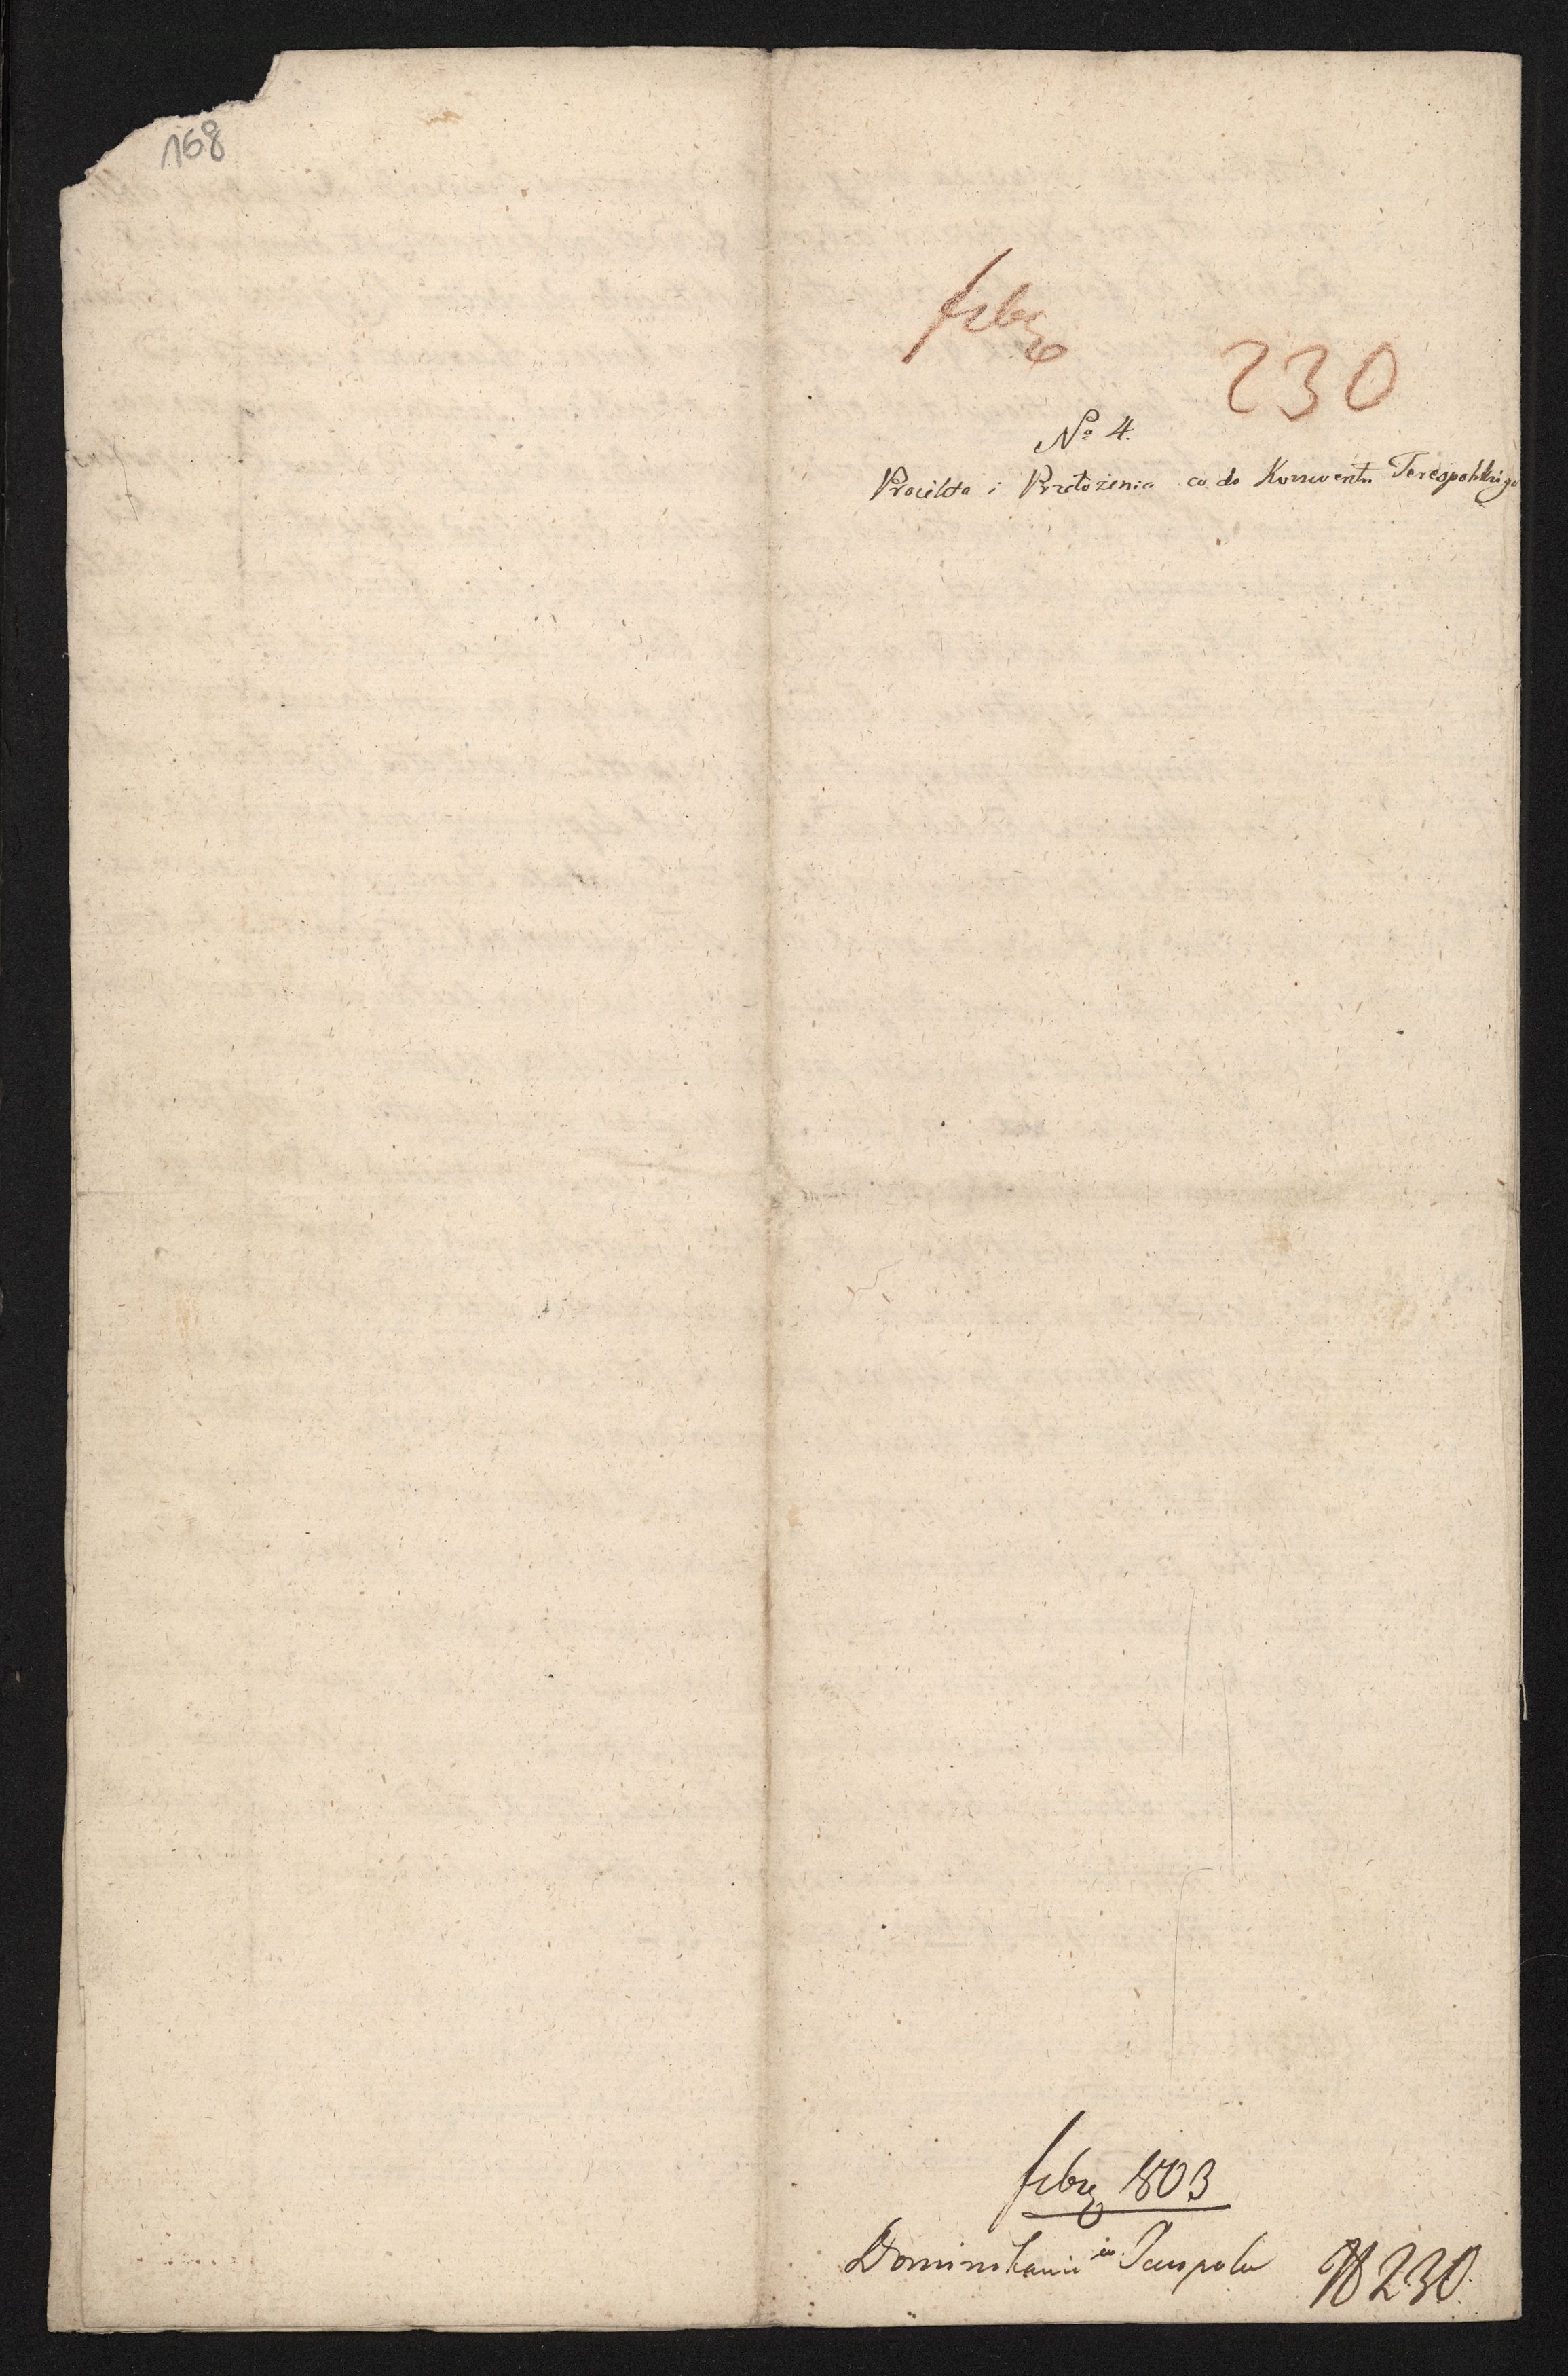 168
febr
230
No 4.
Proiekta i Przełożenia co do Konwentu Terespolskiego
febr 1803
Dominikanie in Terespolu N 230.